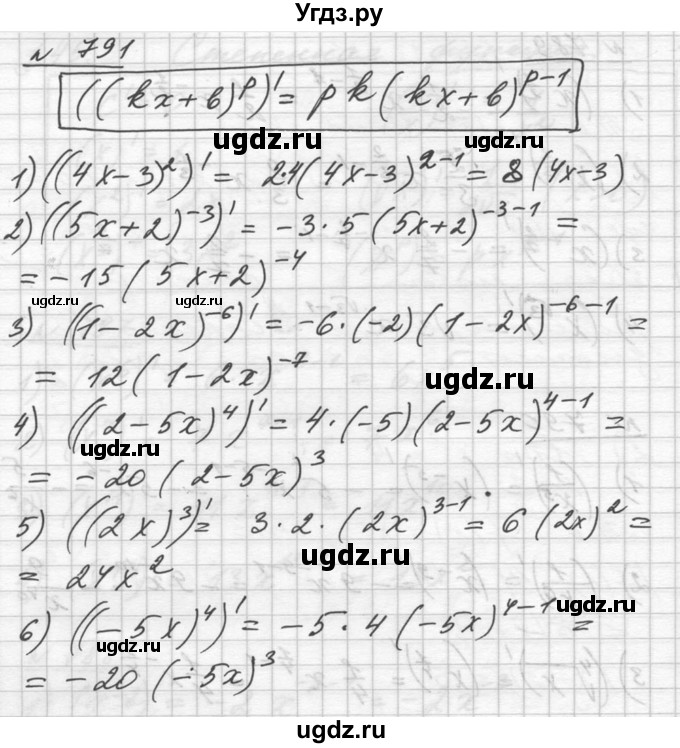 Угдз.ру
№ 791
((kx+в)^p)' = pk(kx+в)^{p-1}
ugdz.ru
1) ((4x-3)^2)' = 2·4(4x-3)^{2-1} = 8(4x-3)
2) ((5x+2)^{-3})' = -3·5(5x+2)^{-3-1} =
ugdz.ru
= -15(5x+2)^{-4}
ugdz.ru ugdz.ru
3) ((1-2x)^{-6})' = -6·(-2)(1-2x)^{-6-1} =
= 12(1-2x)^{-7}
ugdz.ru
4) ((2-5x)^4)' = 4·(-5)(2-5x)^{4-1} =
ugdz.ru
= -20(2-5x)^3
5) ((2x)^3)' = 3·2·(2x)^{3-1} = 6(2x)^2 =
ugdz.ru
= 24x^2
ugdz.ru
6) ((-5x)^4)' = -5·4(-5x)^{4-1} =
ugdz.ru
= -20(-5x)^3
ugdz.ru
ugdz.ru